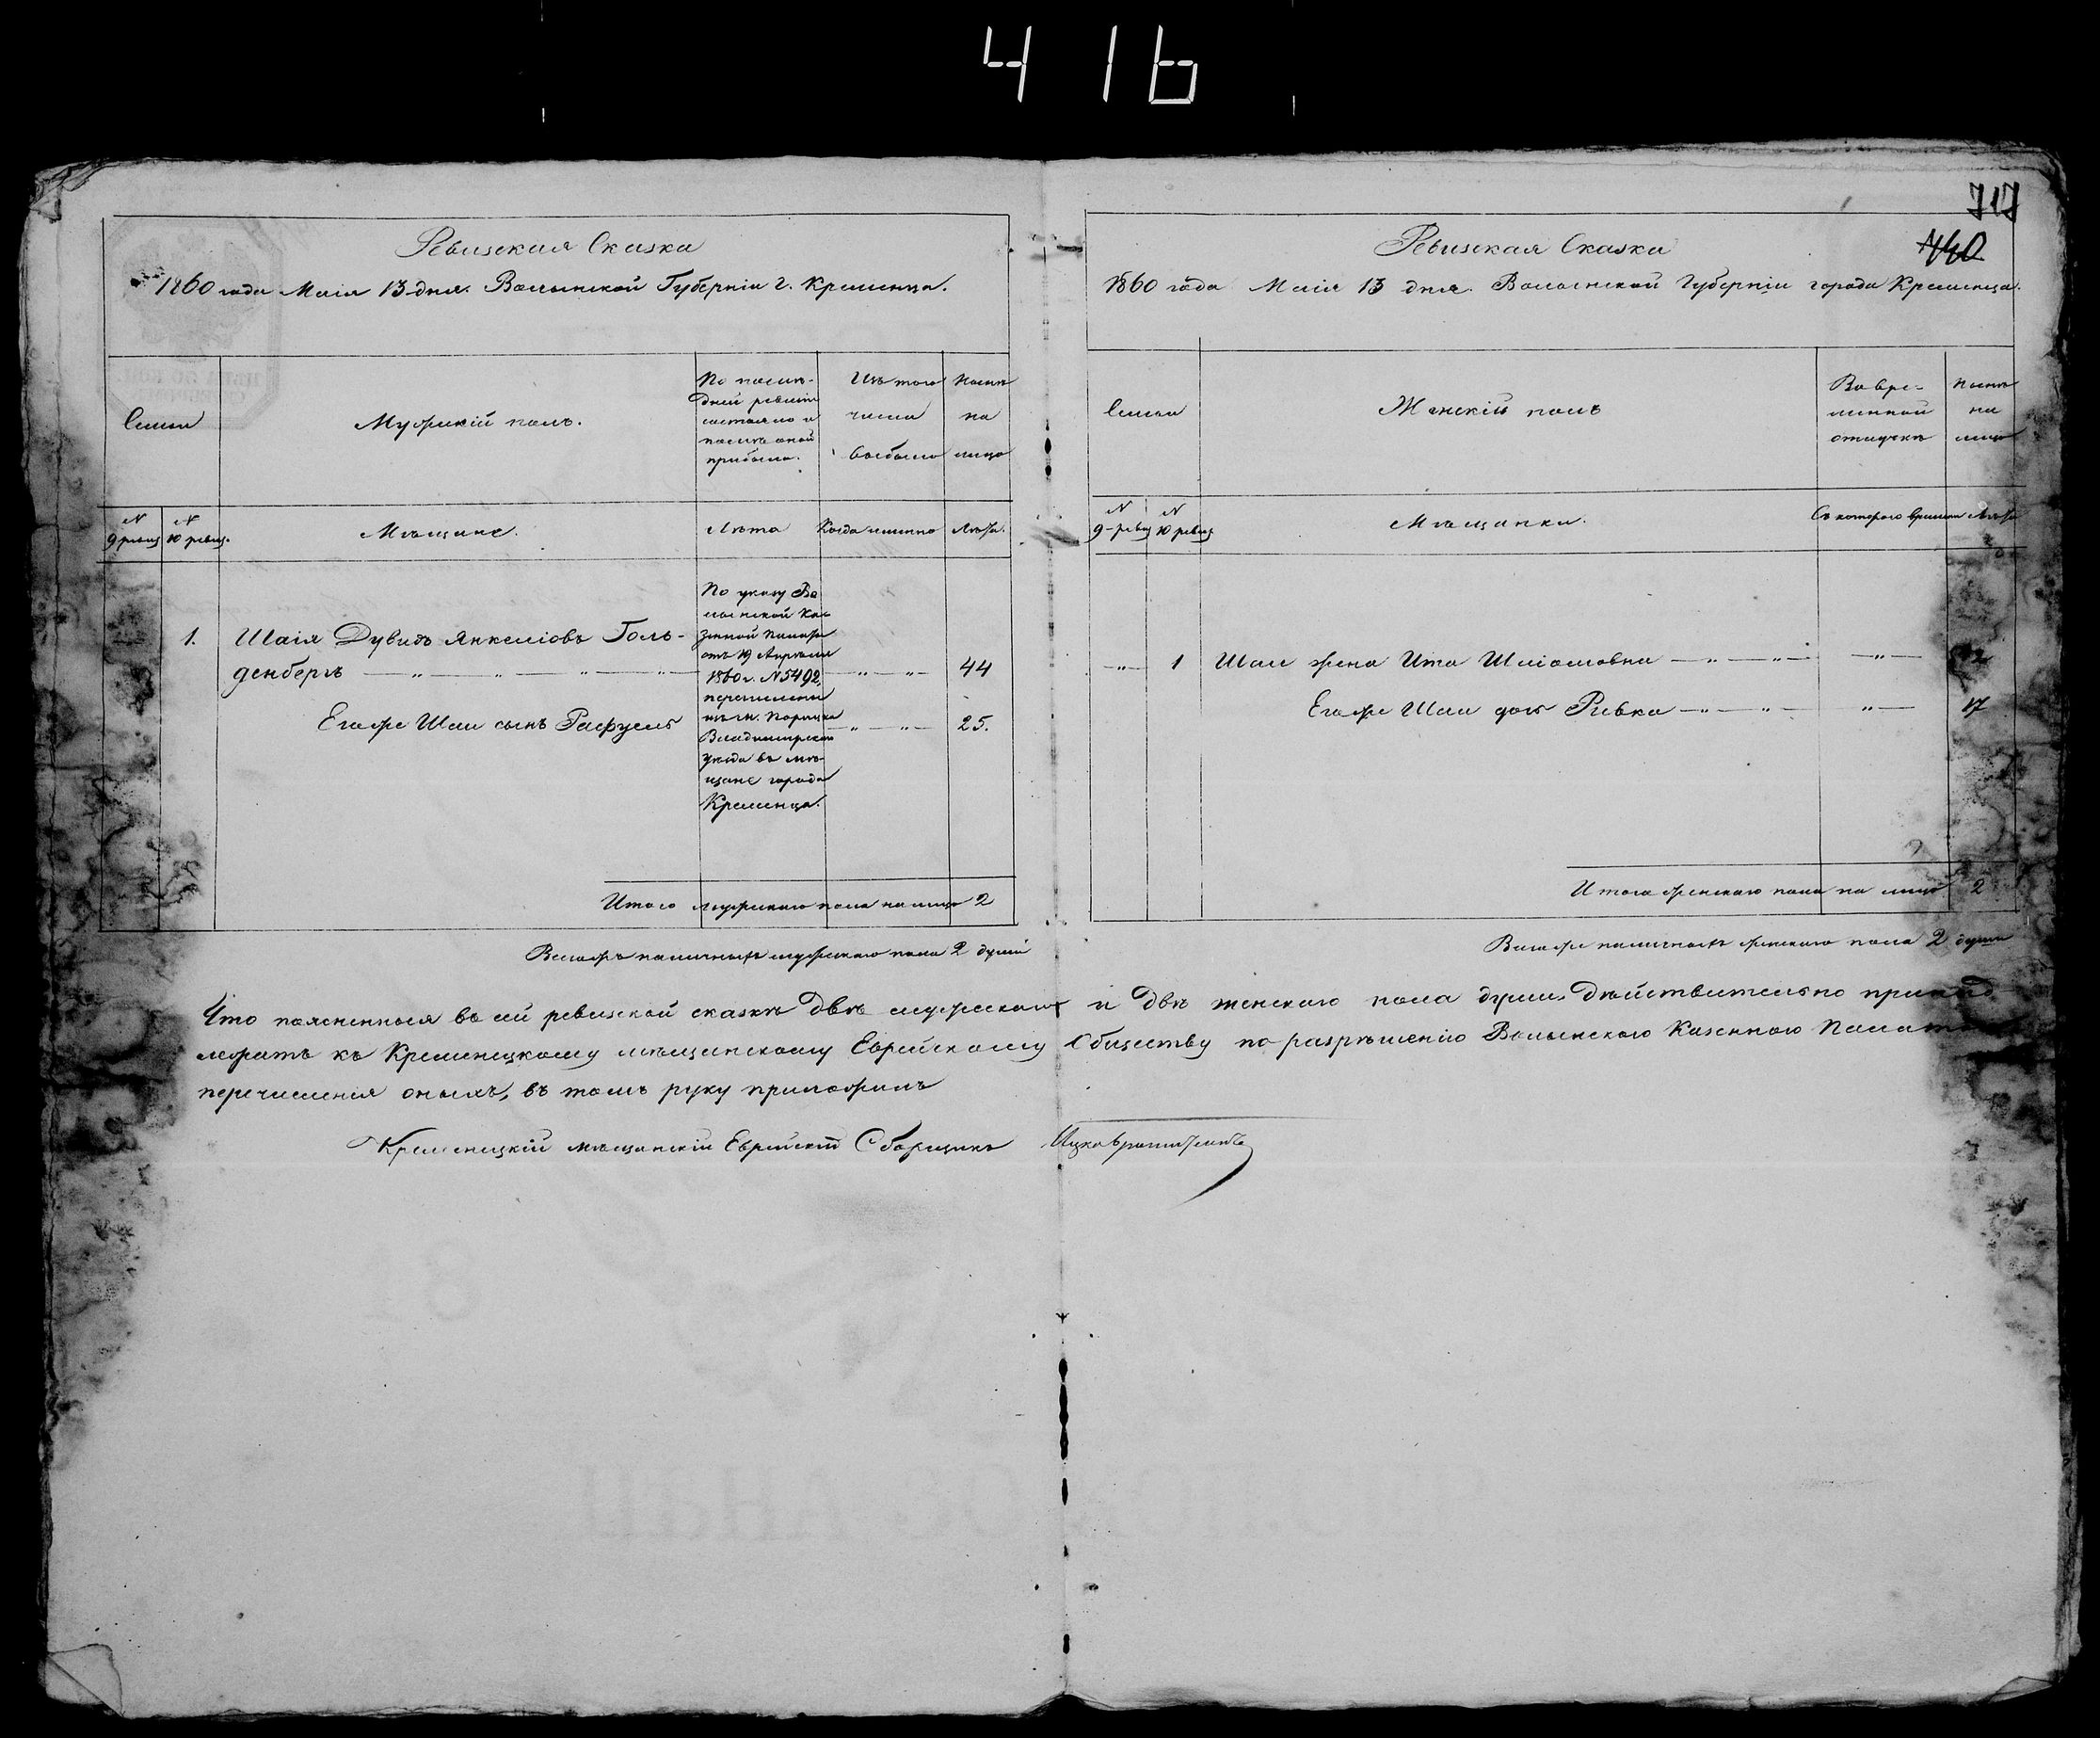 416
717
440
Ревизская Сказка
1860 года Маія 13 дня. Волынской Губерніи г. Кременца.
Семьи
Мужескій полъ.
По послѣ-
дней ревизіи
состояло и
послѣ оной
прибыло.
Изъ того
числа
выбыло
Нынѣ
на
лицо
N
9 ревиз
N
10 ревиз.
Мѣщане.
Лѣта
Когда именно
Лѣта.
1.
Шаія Дувидъ Янкеліовъ Голь-
денбергъ — „ — „ — „ — „ — — „ — „ — 44
Егоже Шаи сынъ Рафуель — „ — „ — 25.
По указу Во
лынской Ка
зенной Палаты
отъ 19 Апрѣля
1860 г. N 5492,
перечислены
изъ м. Порицка
Владимирскаго
уѣзда въ мѣ-
щане города
Кременца.
Итого мужескаго пола на лицо 2
Всегожъ наличныхъ мужескаго пола 2 души
Ревизская Сказка
1860 года Маія 13 дня. Волынской Губерніи города Кременца.
Семьи
Женскій полъ
Во вре-
менной
отлучкѣ
Нынѣ
на
лицо
N
9-ревиз
N
10 ревиз
Мѣщанки.
Съ которого времени
Лѣта
— „ — 1 Шаи жена Ита — „ — „ — — „ —
Егоже Шаи дочь Ривка — „ — „ — „ — 17
Итого женскаго пола на лицо 2
Всегоже наличныхъ женскаго пола 2 души
Что поясненныя въ сей ревизской сказкѣ двѣ мужескаго и двѣ женскаго пола души, дѣйствительно принад
лежатъ къ Кременецкому мѣщанскому Еврейскому Обществу по разрѣшенію Волынскою Казенною Палатою
перечисленія оныхъ, въ томъ руку приложилъ
Кременецкій мѣщанскій Еврейскій Сборщикъ Ицко